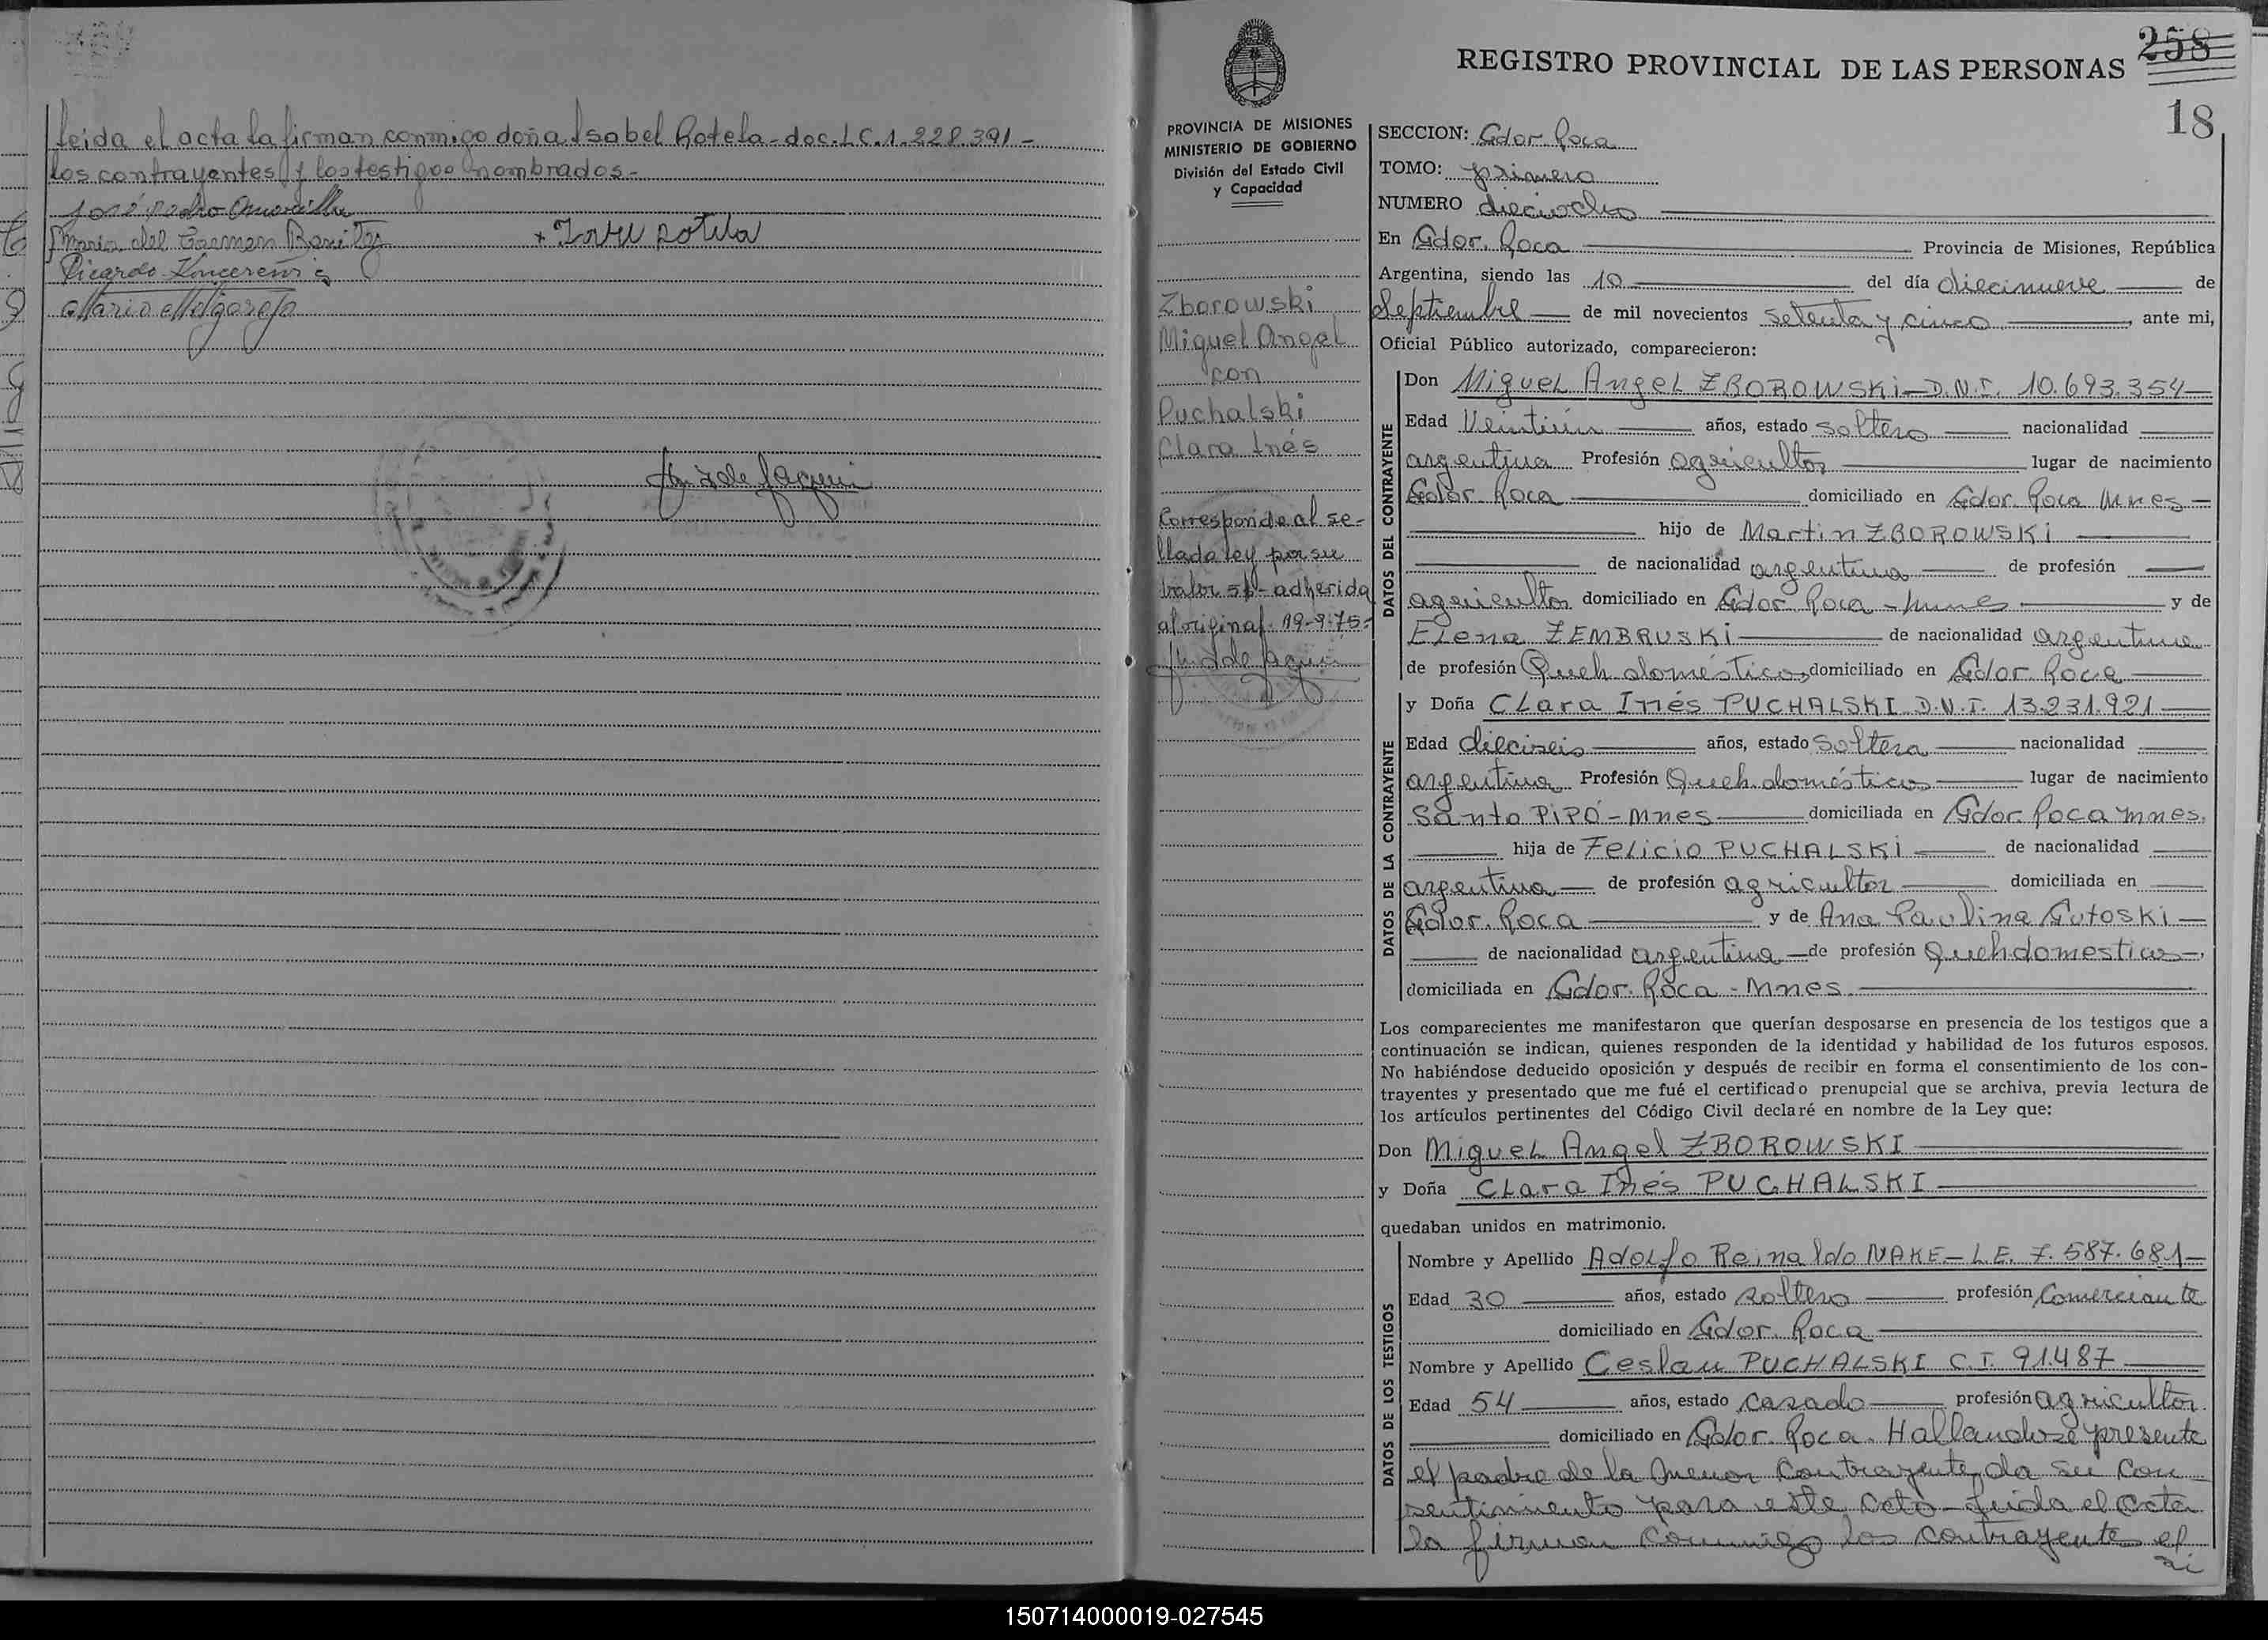 leida el acta la firman conmigo doña Isabel Rotela - doc. L.C. 1.228.391 -
los contrayentes y los testigos nombrados -
José Pedro
Maria del Carmen Benitez
+ Isabel Rotela
Ricardo
Mario Melgarejo
258
REGISTRO PROVINCIAL DE LAS PERSONAS
18
PROVINCIA DE MISIONES
MINISTERIO DE GOBIERNO
División del Estado Civil
y Capacidad
Zborowski
Miguel Angel
con
Puchalski
Clara Inés
Corresponde al se-
llado ley por su
valor adherida
al original. 19-9-75-
SECCION: Gdor. Roca
TOMO: primero
NUMERO dieciocho
En Gdor. Roca Provincia de Misiones, República
Argentina, siendo las 10 del día diecinueve de
Septiembre de mil novecientos setenta y cinco, ante mi,
Oficial Público autorizado, comparecieron:
DATOS DEL CONTRAYENTE
Don Miguel Angel ZBOROWSKI - D.N.I. 10.693.354
Edad Veintiún años, estado soltero nacionalidad
argentina Profesión agricultor lugar de nacimiento
Gdor. Roca domiciliado en Gdor Roca Mnes -
hijo de Martin ZBOROWSKI
de nacionalidad argentina de profesión
agricultor domiciliado en Gdor Roca - Mnes y de
Elena ZEMBRUSKI de nacionalidad argentina
de profesión Queh. domésticos domiciliado en Gdor. Roca
DATOS DE LA CONTRAYENTE
y Doña Clara Inés PUCHALSKI D.N.I. 13.231.921
Edad dieciseis años, estado Soltera nacionalidad
argentina Profesión Queh. domésticos lugar de nacimiento
Santo PIPÓ - Mnes domiciliada en Gdor Roca Mnes.
hija de Felicio PUCHALSKI de nacionalidad
argentina de profesión agricultor domiciliada en
Gdor. Roca y de Ana Paulina Gutoski
de nacionalidad argentina de profesión Queh domesticos,
domiciliada en Gdor. Roca - Mnes.
Los comparecientes me manifestaron que querían desposarse en presencia de los testigos que a
continuación se indican, quienes responden de la identidad y habilidad de los futuros esposos.
No habiéndose deducido oposición y después de recibir en forma el consentimiento de los con-
trayentes y presentado que me fué el certificado prenupcial que se archiva, previa lectura de
los artículos pertinentes del Código Civil declaré en nombre de la Ley que:
Don Miguel Angel ZBOROWSKI
y Doña Clara Inés PUCHALSKI
quedaban unidos en matrimonio.
DATOS DE LOS TESTIGOS
Nombre y Apellido Adolfo Reinaldo NAKE - L.E. 7.587.681
Edad 30 años, estado soltero profesión Comerciante
domiciliado en Gdor. Roca
Nombre y Apellido Ceslau PUCHALSKI C.I. 91.487
Edad 54 años, estado casado profesión agricultor
domiciliado en Gdor. Roca. Hallandose presente
el padre de la menor contrayente, da su con-
sentimiento para este acto - Leida el acta
la firman conmigo los contrayente el
150714000019-027545